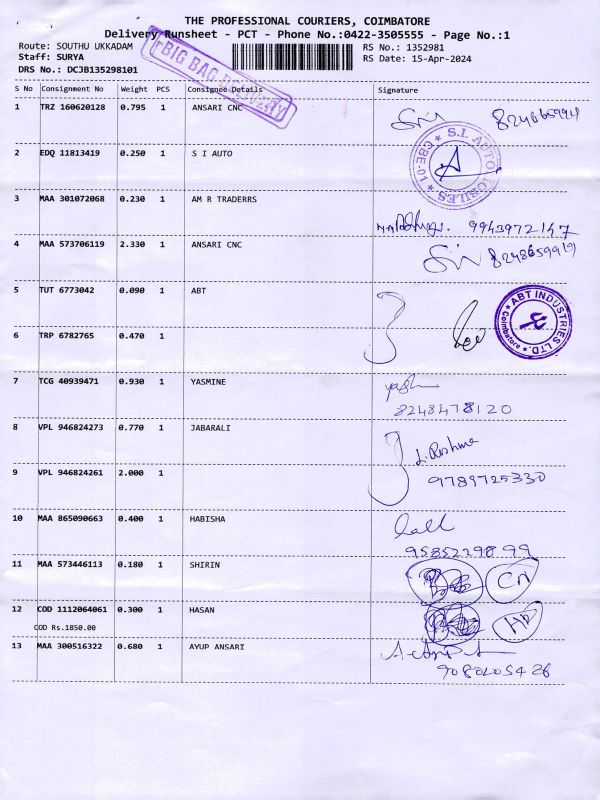 THE PROFESSIONAL COURIERS, COIMBATORE
Delivery Runsheet - PCT - Phone No.:0422-3505555 - Page No.:1
Route: SOUTHU UKKADAM
RS No.: 1352981
Staff: SURYA
RS Date: 15-Apr-2024
DRS No.: DCJB135298101
BIG BAG DELIVERY
S No Consignment No Weight PCS Consignee Details Signature
1 TRZ 160620128 0.795 1 ANSARI CNC
2 EDQ 11813419 0.250 1 S I AUTO
S.I. AUTOMOBILES CBE-01
3 MAA 301072068 0.230 1 AM R TRADERRS
9943972147
4 MAA 573706119 2.330 1 ANSARI CNC
8248659919
5 TUT 6773042 0.090 1 ABT
ABT INDUSTRIES LTD. Coimbatore
6 TRP 6782765 0.470 1
7 TCG 40939471 0.930 1 YASMINE
8248478120
8 VPL 946824273 0.770 1 JABARALI
J. Reshma
9789725330
9 VPL 946824261 2.000 1
10 MAA 865090663 0.400 1 HABISHA
9585229899
11 MAA 573446113 0.180 1 SHIRIN
CN
12 COD 1112064061 0.300 1 HASAN
COD Rs.1850.00
13 MAA 300516322 0.680 1 AYUP ANSARI
9080205426